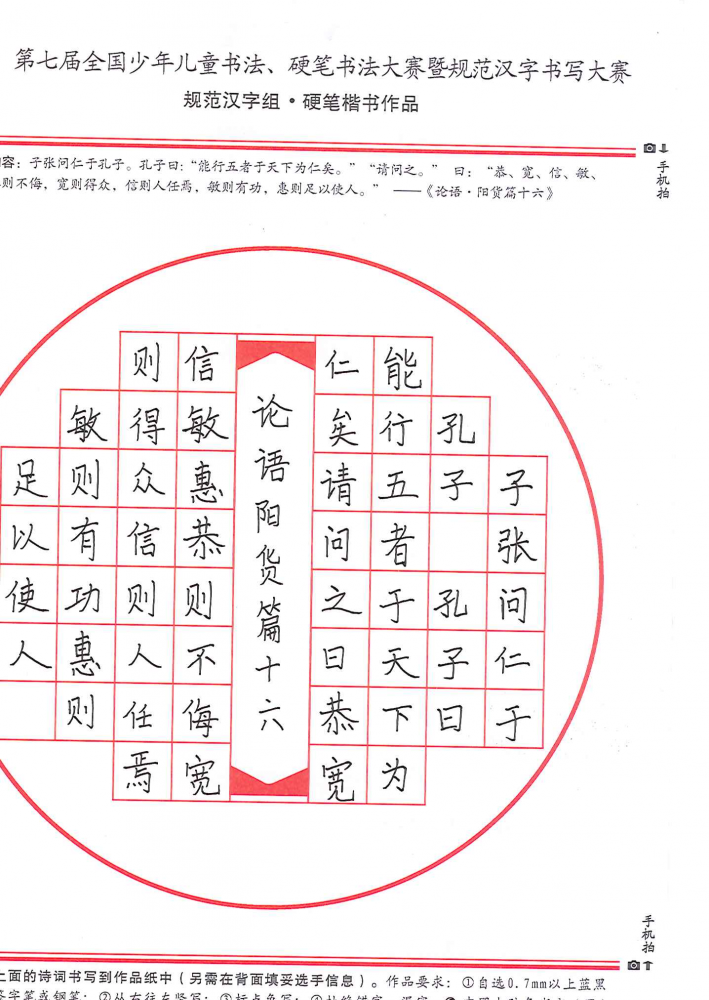 第七届全国少年儿童书法、硬笔书法大赛暨规范汉字书写大赛
规范汉字组·硬笔楷书作品
手机拍
容：子张问仁于孔子。孔子曰：“能行五者于天下为仁矣。”“请问之。” 曰：“恭、宽、信、敏、
则不侮，宽则得众，信则人任焉，敏则有功，惠则足以使人。” ——《论语·阳货篇十六》
子张问仁于
孔子 孔子曰
能行五者于天下为
仁矣请问之曰恭宽
论语阳货篇十六
信敏惠恭则不侮宽
则得众信则人任焉
敏则有功惠则
足以使人
手机拍
上面的诗词书写到作品纸中（另需在背面填妥选手信息）。作品要求：①自选0.7mm以上蓝黑
签字笔或钢笔；②从右往左竖写；③标点免写；